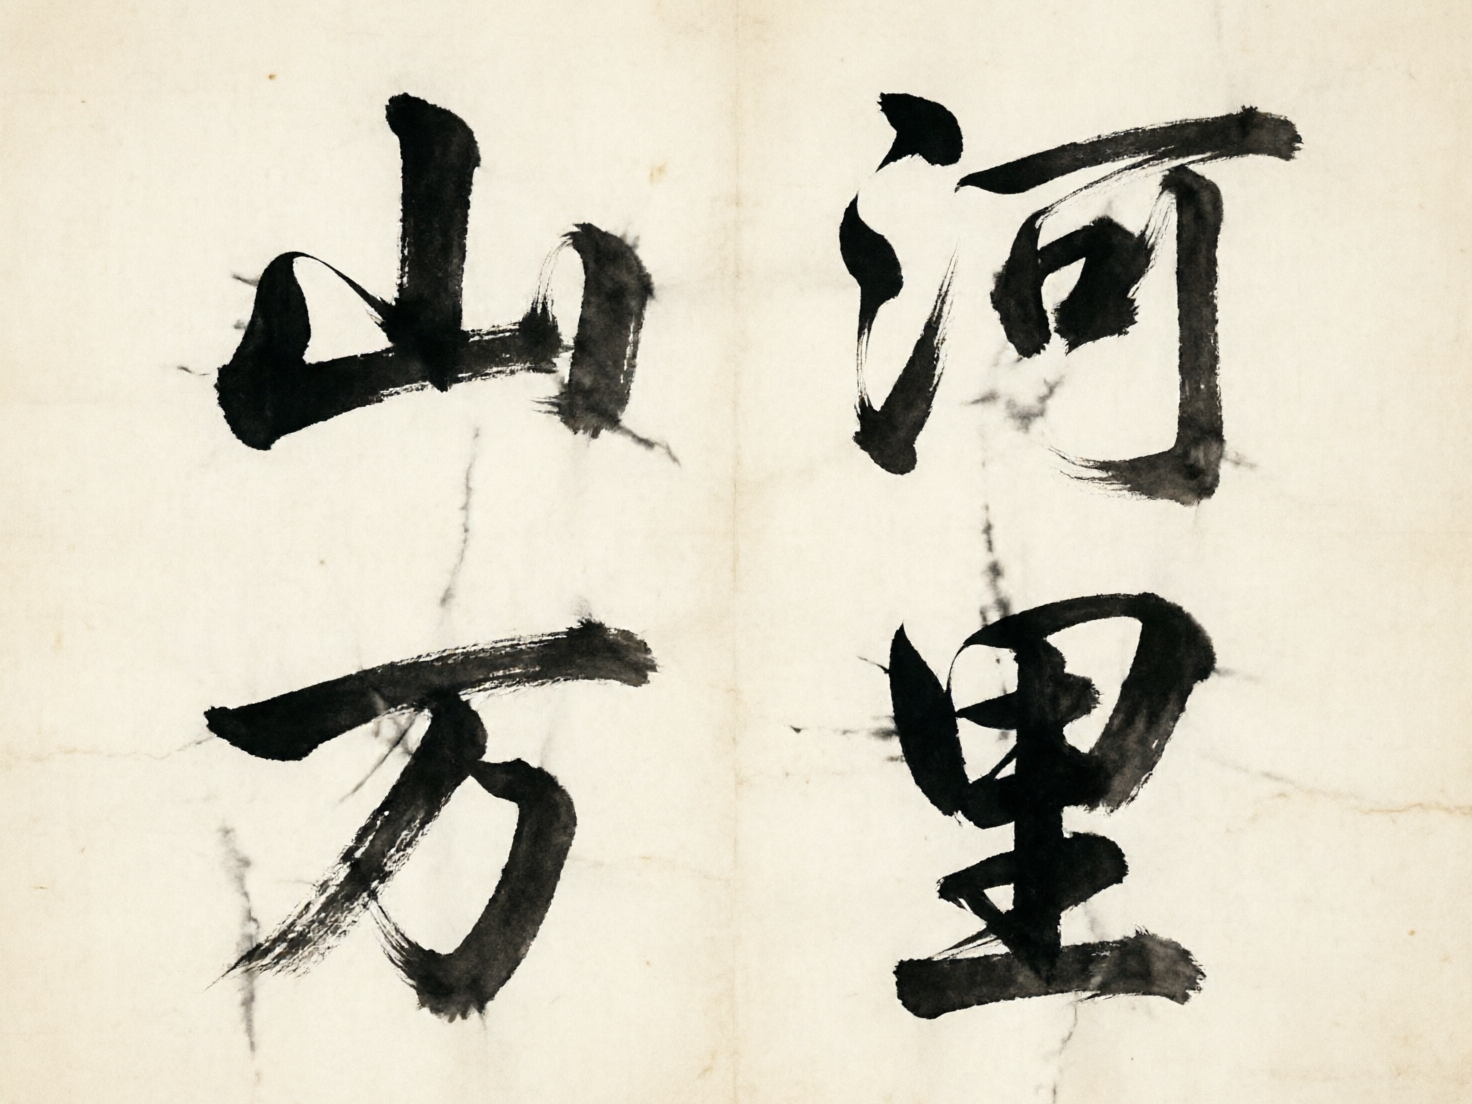 山河
万里